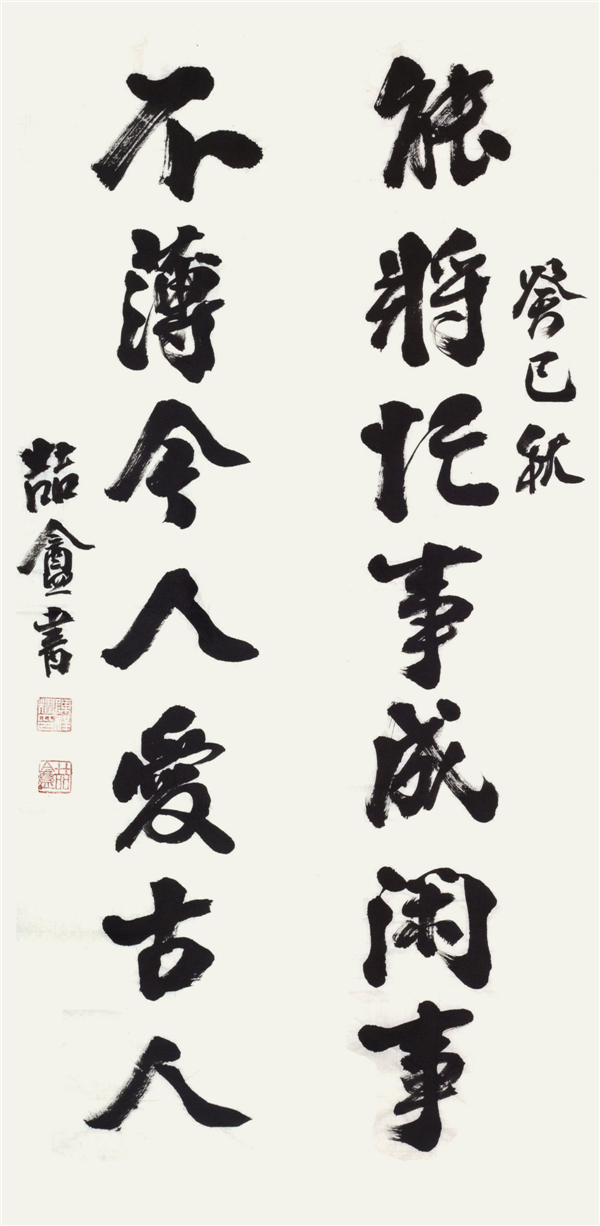 癸巳秋
能將忙事成闲事
不薄今人愛古人
喆盦書